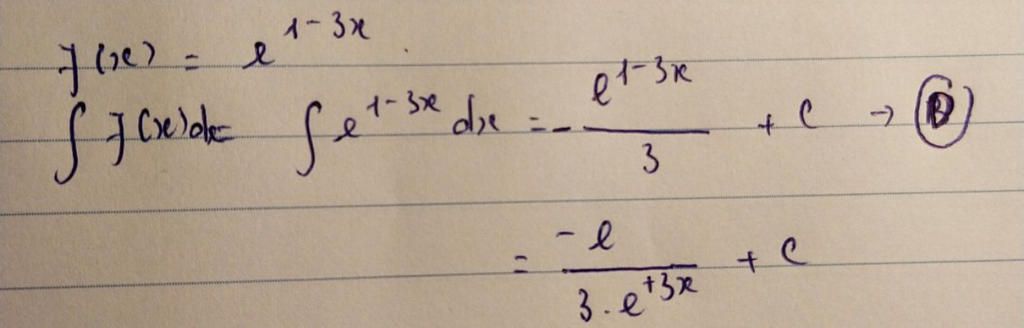 f(x) = e^{1-3x}.
∫ f(x)dx = ∫ e^{1-3x} dx = - \frac{e^{1-3x}}{3} + C → Ⓓ
= \frac{-e}{3 . e^{+3x}} + C